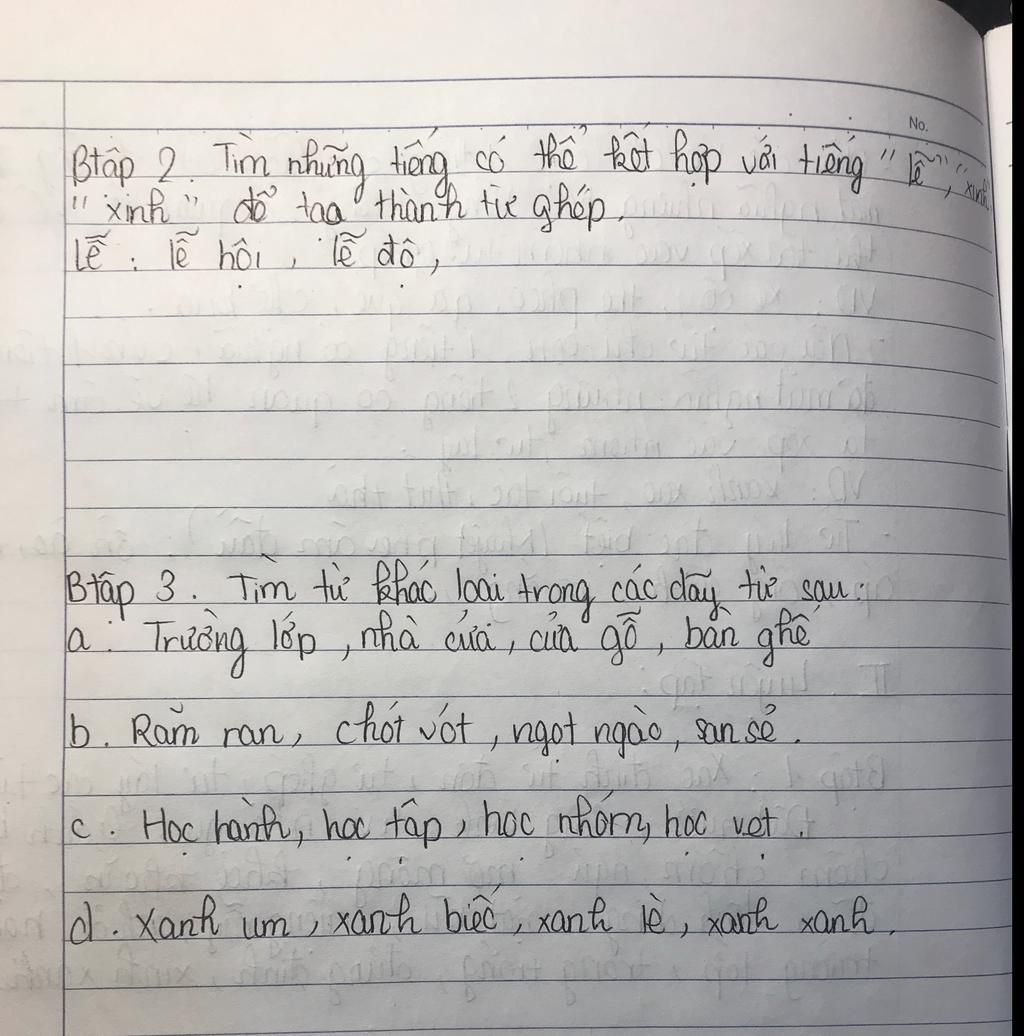 No.
Btập 2. Tìm những tiếng có thể kết hợp với tiếng "lễ", "xinh
"xinh" để tạo thành từ ghép.
Lễ: lễ hội, lễ độ,
Btập 3. Tìm từ khác loại trong các dãy từ sau:
a. Trường lớp, nhà cửa, cửa gỗ, bàn ghế
b. Răm ran, chót vót, ngọt ngào, san sẻ.
c. Học hành, học tập, học nhóm, học vẹt.
d. Xanh um, xanh biếc, xanh lè, xanh xanh.